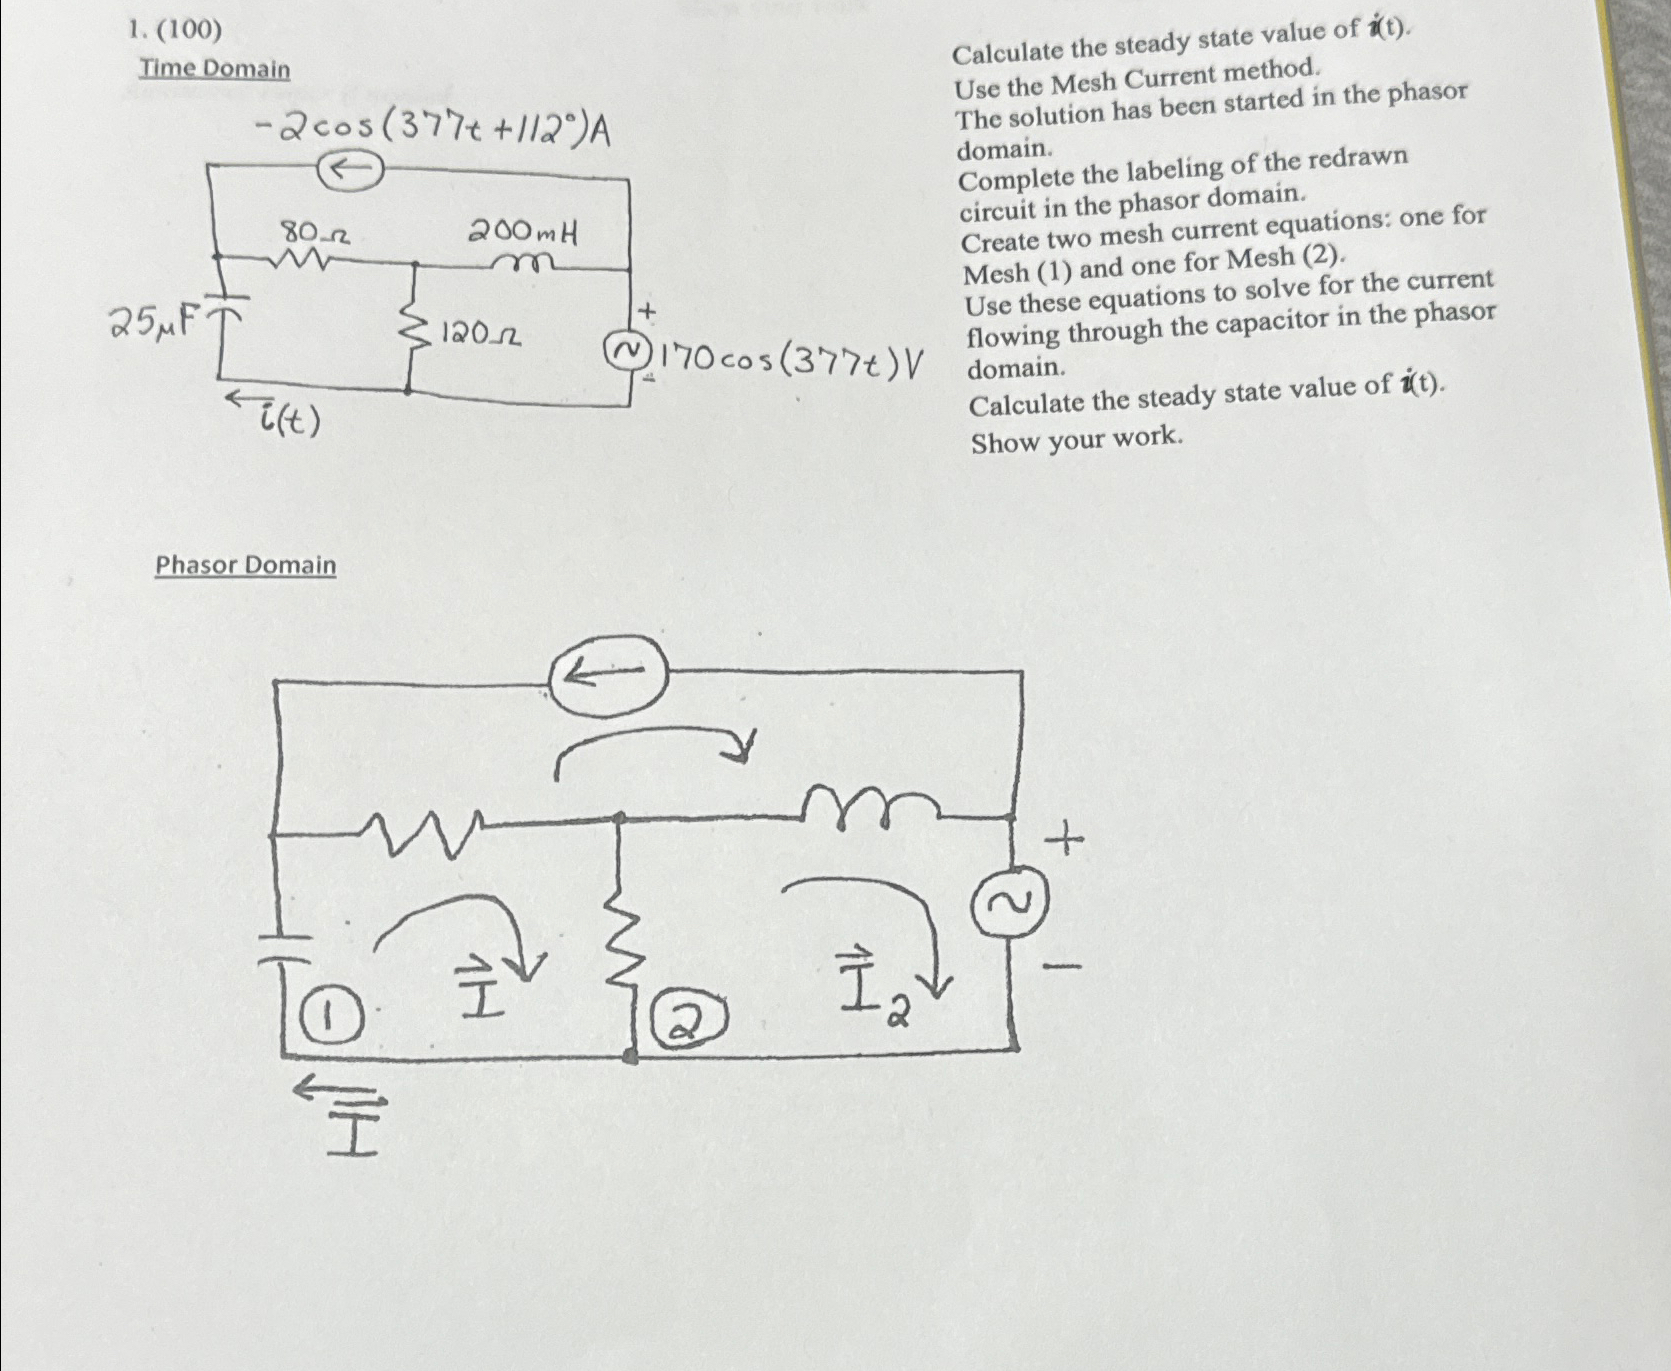 1. (100)
Time Domain
-2cos(377t+112°)A
80Ω 200mH
25μF
120Ω
+
~ 170cos(377t)V
-
i(t)
Calculate the steady state value of i(t).
Use the Mesh Current method.
The solution has been started in the phasor
domain.
Complete the labeling of the redrawn
circuit in the phasor domain.
Create two mesh current equations: one for
Mesh (1) and one for Mesh (2).
Use these equations to solve for the current
flowing through the capacitor in the phasor
domain.
Calculate the steady state value of i(t).
Show your work.
Phasor Domain
+
~
-
① I⃗
② I⃗₂
I⃗